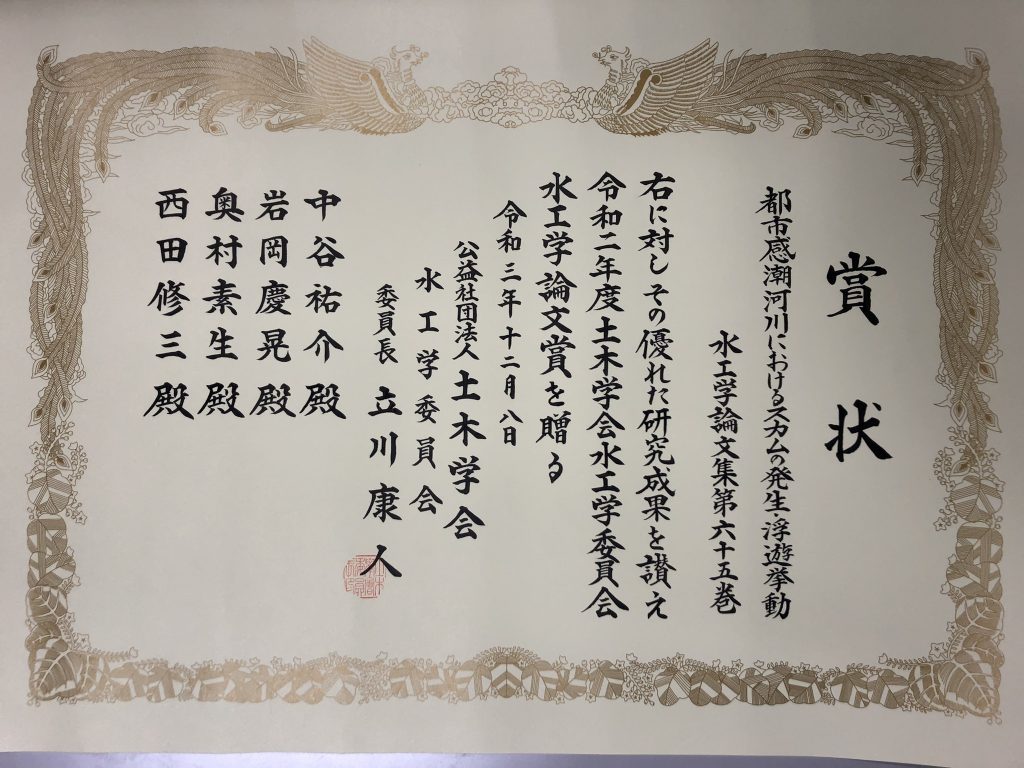 賞状
都市感潮河川におけるスカムの発生・浮遊挙動
水工学論文集第六十五巻
右に対しその優れた研究成果を讃え
令和二年度土木学会水工学委員会
水工学論文賞を贈る
令和三年十二月八日
公益社団法人土木学会
水工学委員会
委員長 立川康人
中谷祐介殿
岩岡慶晃殿
奥村素生殿
西田修三殿